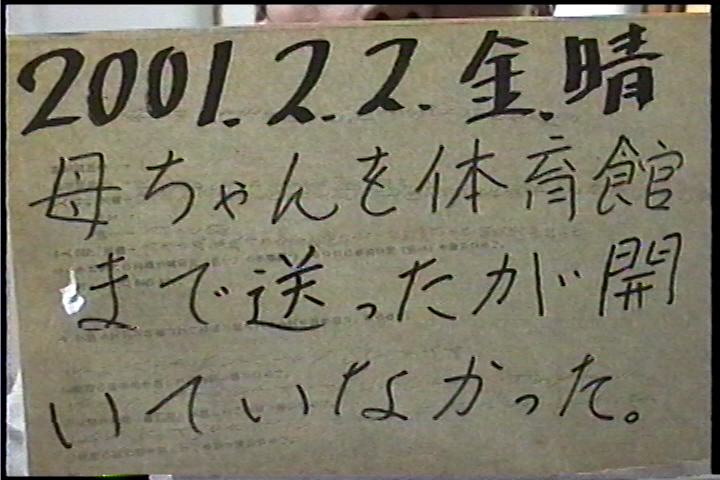 2001.2.2.金.晴
母ちゃんを体育館
まで送ったが開
いていなかった。